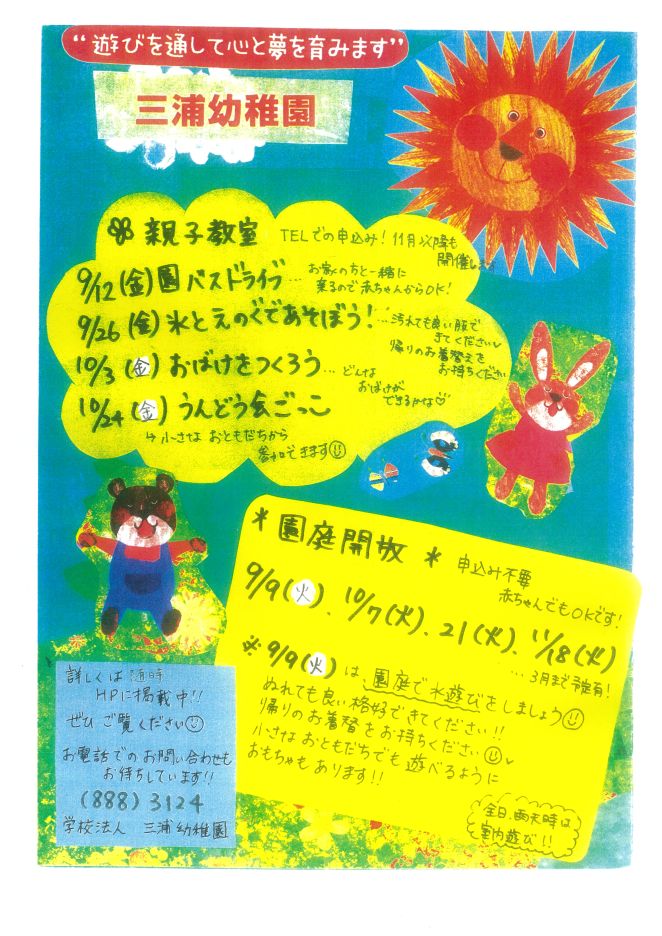 “遊びを通して心と夢を育みます”
三浦幼稚園
親子教室 TELでの申込み！11月以降も
開催します
9/12(金)園バスドライブ…お家のちと一緒に
来るので赤ちゃんからOK！
9/26(金)氷とえのぐであそぼう！…汚れても良い服で
きてください
帰りのお着替えを
お持ちください
10/3(金)おばけをつくろう…どんな
おばけが
できるかな
10/24(金)うんどう会ごっこ
→小さな おともだちから
参加できます
＊園庭開放＊ 申込み不要
赤ちゃんでもOKです！
9/9(火)、10/7(火)、21(火)、11/18(火)
…3月まで予定有！
※9/9(火)は、園庭で水遊びをしましょう
ぬれても良い格好できてください!!
帰りのお着替をお持ちください
小さなおともだちでも遊べるように
おもちゃもあります!!
全日、雨天時は
室内遊び!!
詳しくは随時
HPに掲載中!!
ぜひ ご覧ください
お電話でのお問い合わせも
お待ちしています!!
(888)3124
学校法人 三浦幼稚園